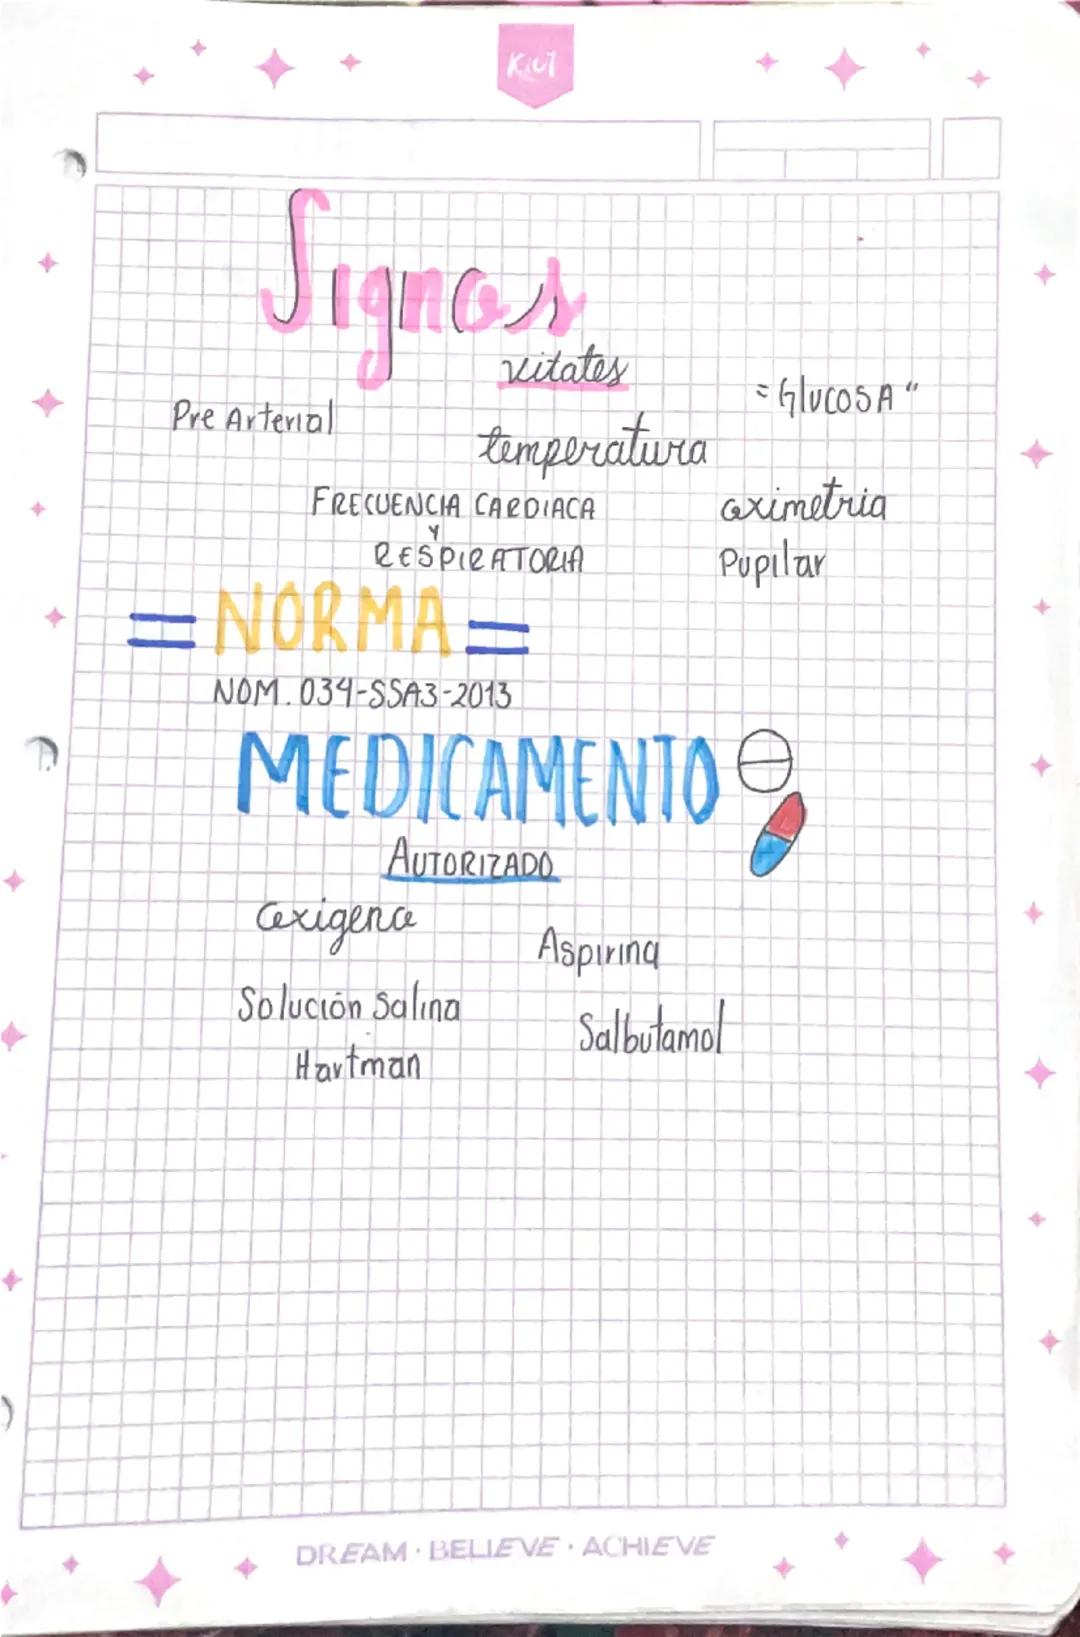 KIUT
Signos
vitates
Pre Arterial
temperatura
= Glucosa "
FRECUENCIA CARDIACA
Y
RESPIRATORIA
oximetria
Pupilar
= NORMA =
NOM. 034-SSA3-2013
MEDICAMENTO
AUTORIZADO
oxigeno
Aspirina
Solución Salina
Hartman
Salbutamol
DREAM · BELIEVE · ACHIEVE